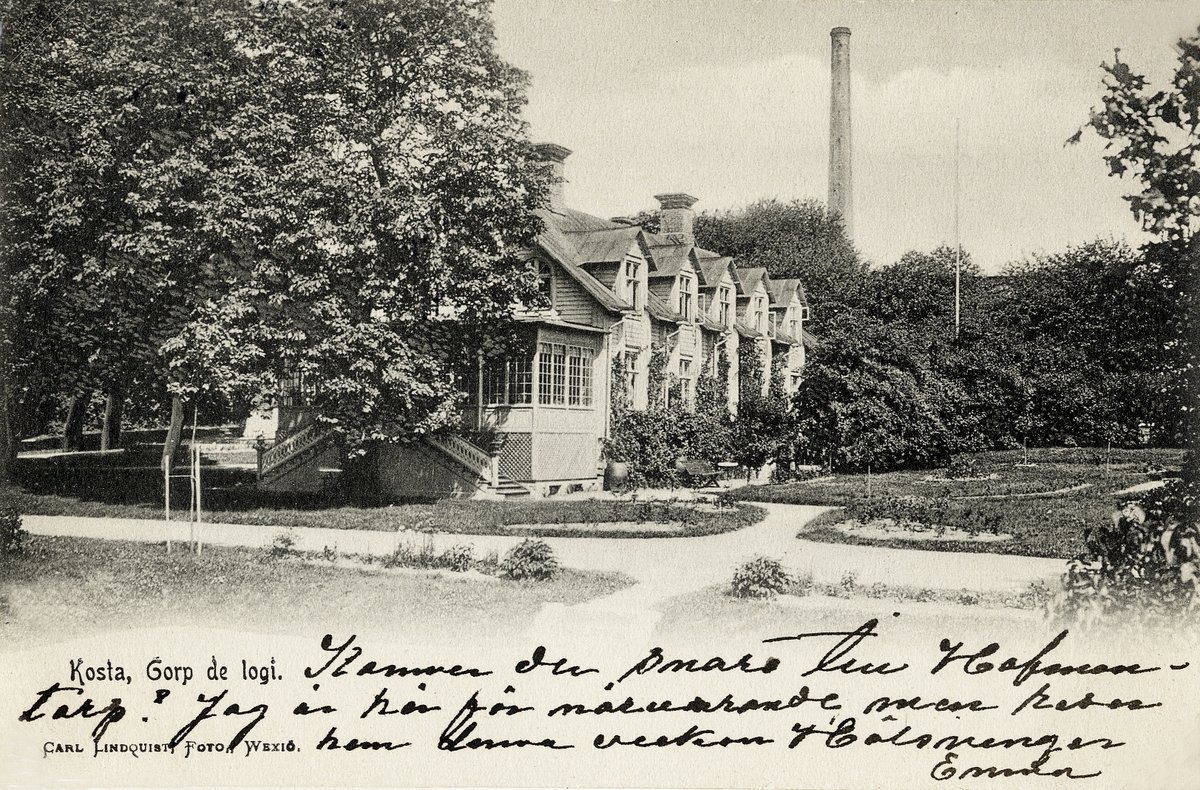 Kosta, Corp de logi. Kommer du snart till Hofman-
torp? Jag är här för närvarande, men reser
CARL LINDQUIST, FOTO., WEXIÖ. hem denna veckan Hälsningar
Emma